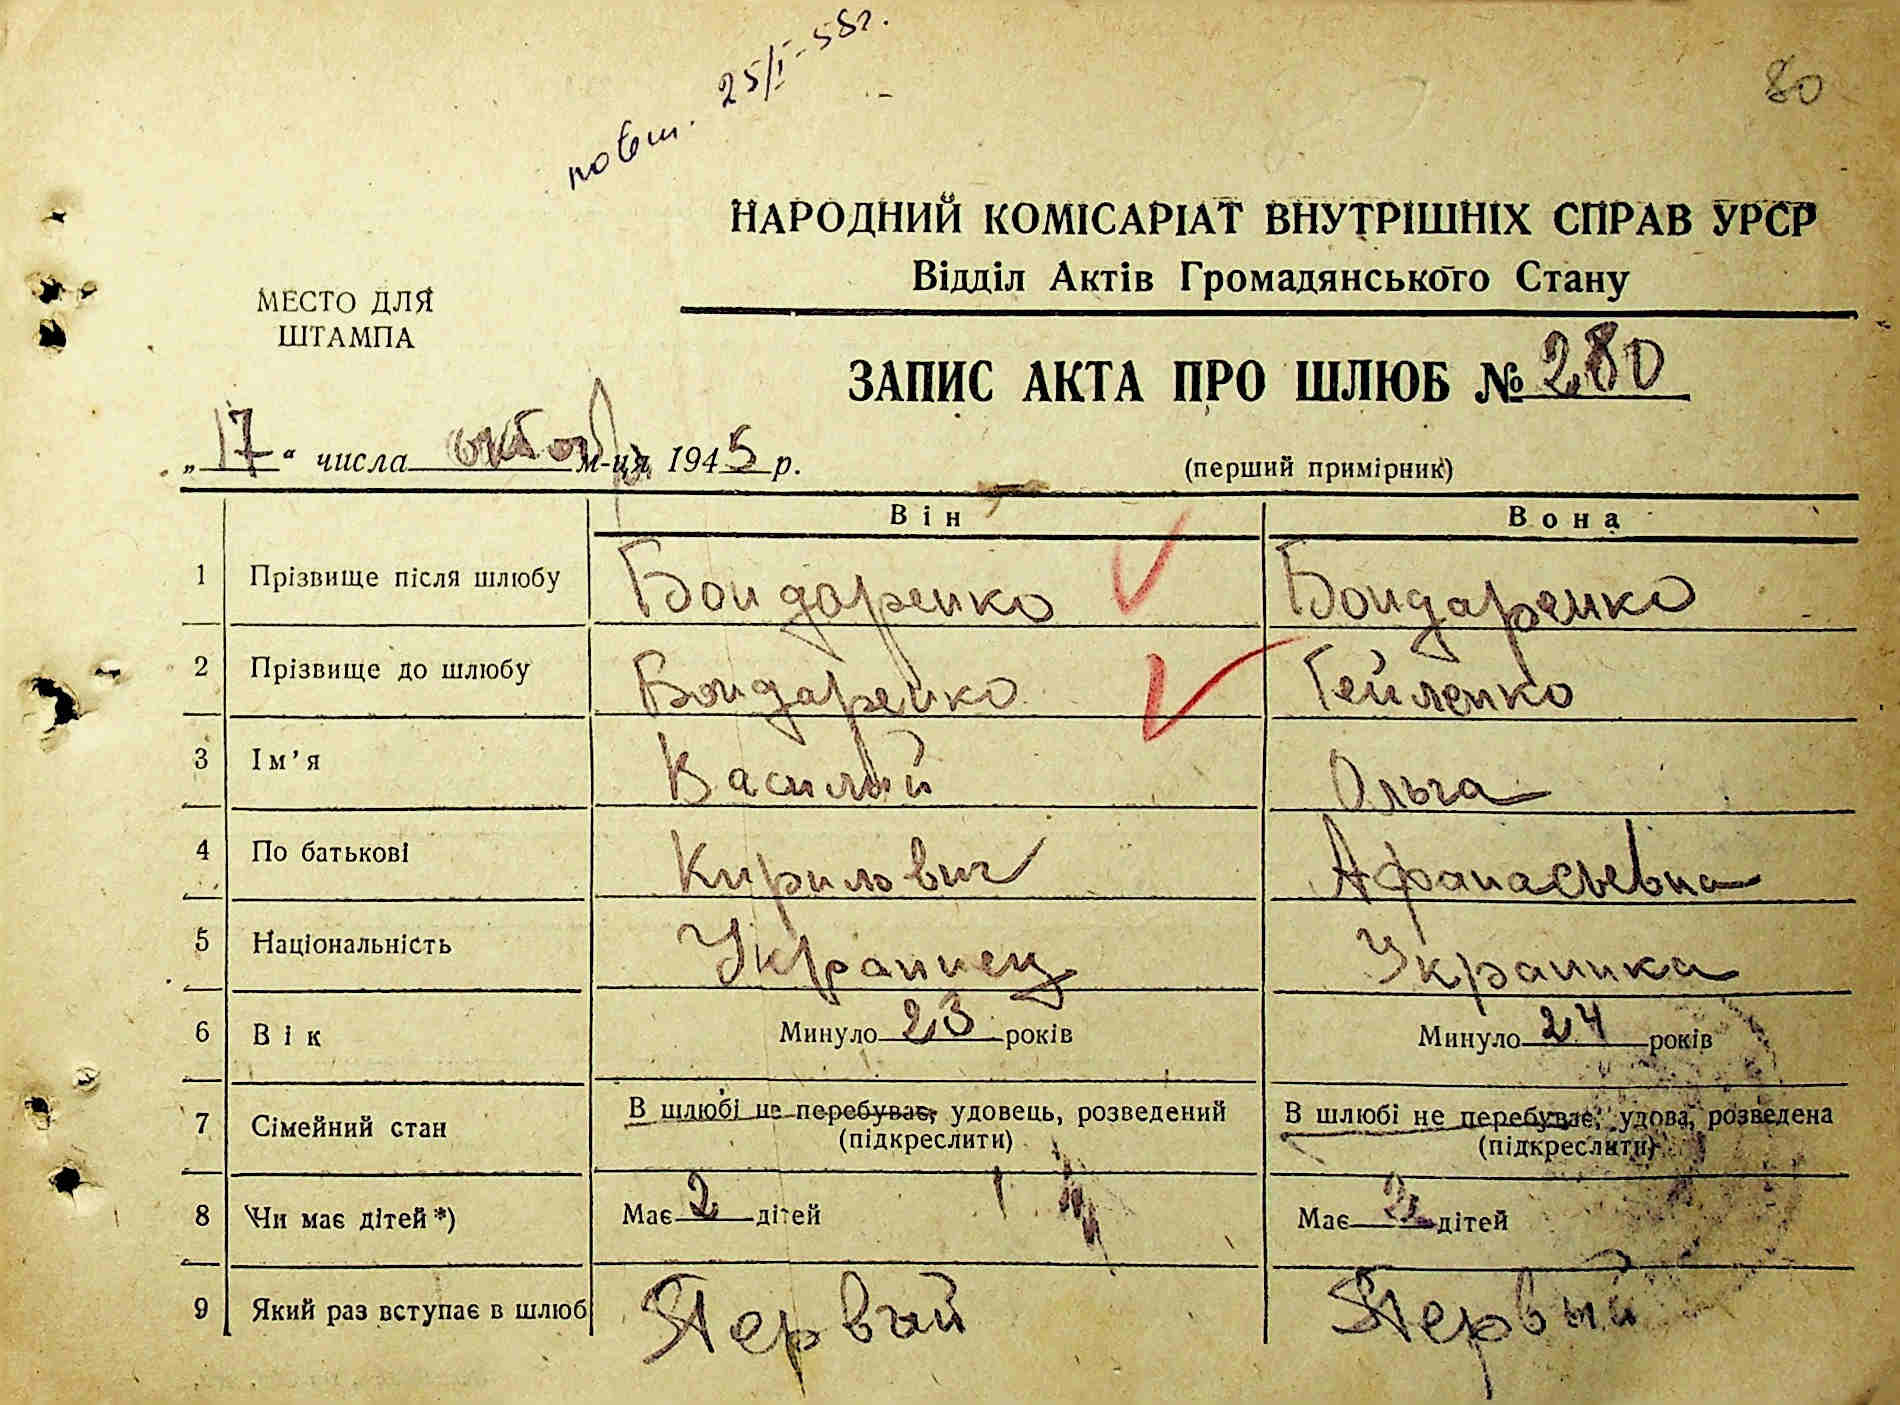 повт. 25/I-58г.
80
НАРОДНИЙ КОМІСАРІАТ ВНУТРІШНІХ СПРАВ УРСР
Відділ Актів Громадянського Стану
МЕСТО ДЛЯ
ШТАМПА
ЗАПИС АКТА ПРО ШЛЮБ № 280
„17“ числа октября м-ця 1945 р.
(перший примірник)
Він Вона
1 Прізвище після шлюбу Бондаренко Бондаренко
2 Прізвище до шлюбу Бондаренко Гейленко
3 Ім’я Василий Ольга
4 По батькові Кирилович Афанасьевна
5 Національність Украинец Украинка
6 Вік Минуло 23 років Минуло 24 років
7 Сімейний стан В шлюбі не перебуває, удовець, розведений В шлюбі не перебуває, удова, розведена
(підкреслити) (підкреслити)
8 Чи має дітей*) Має 2 дітей Має 2 дітей
9 Який раз вступає в шлюб Первый Первый